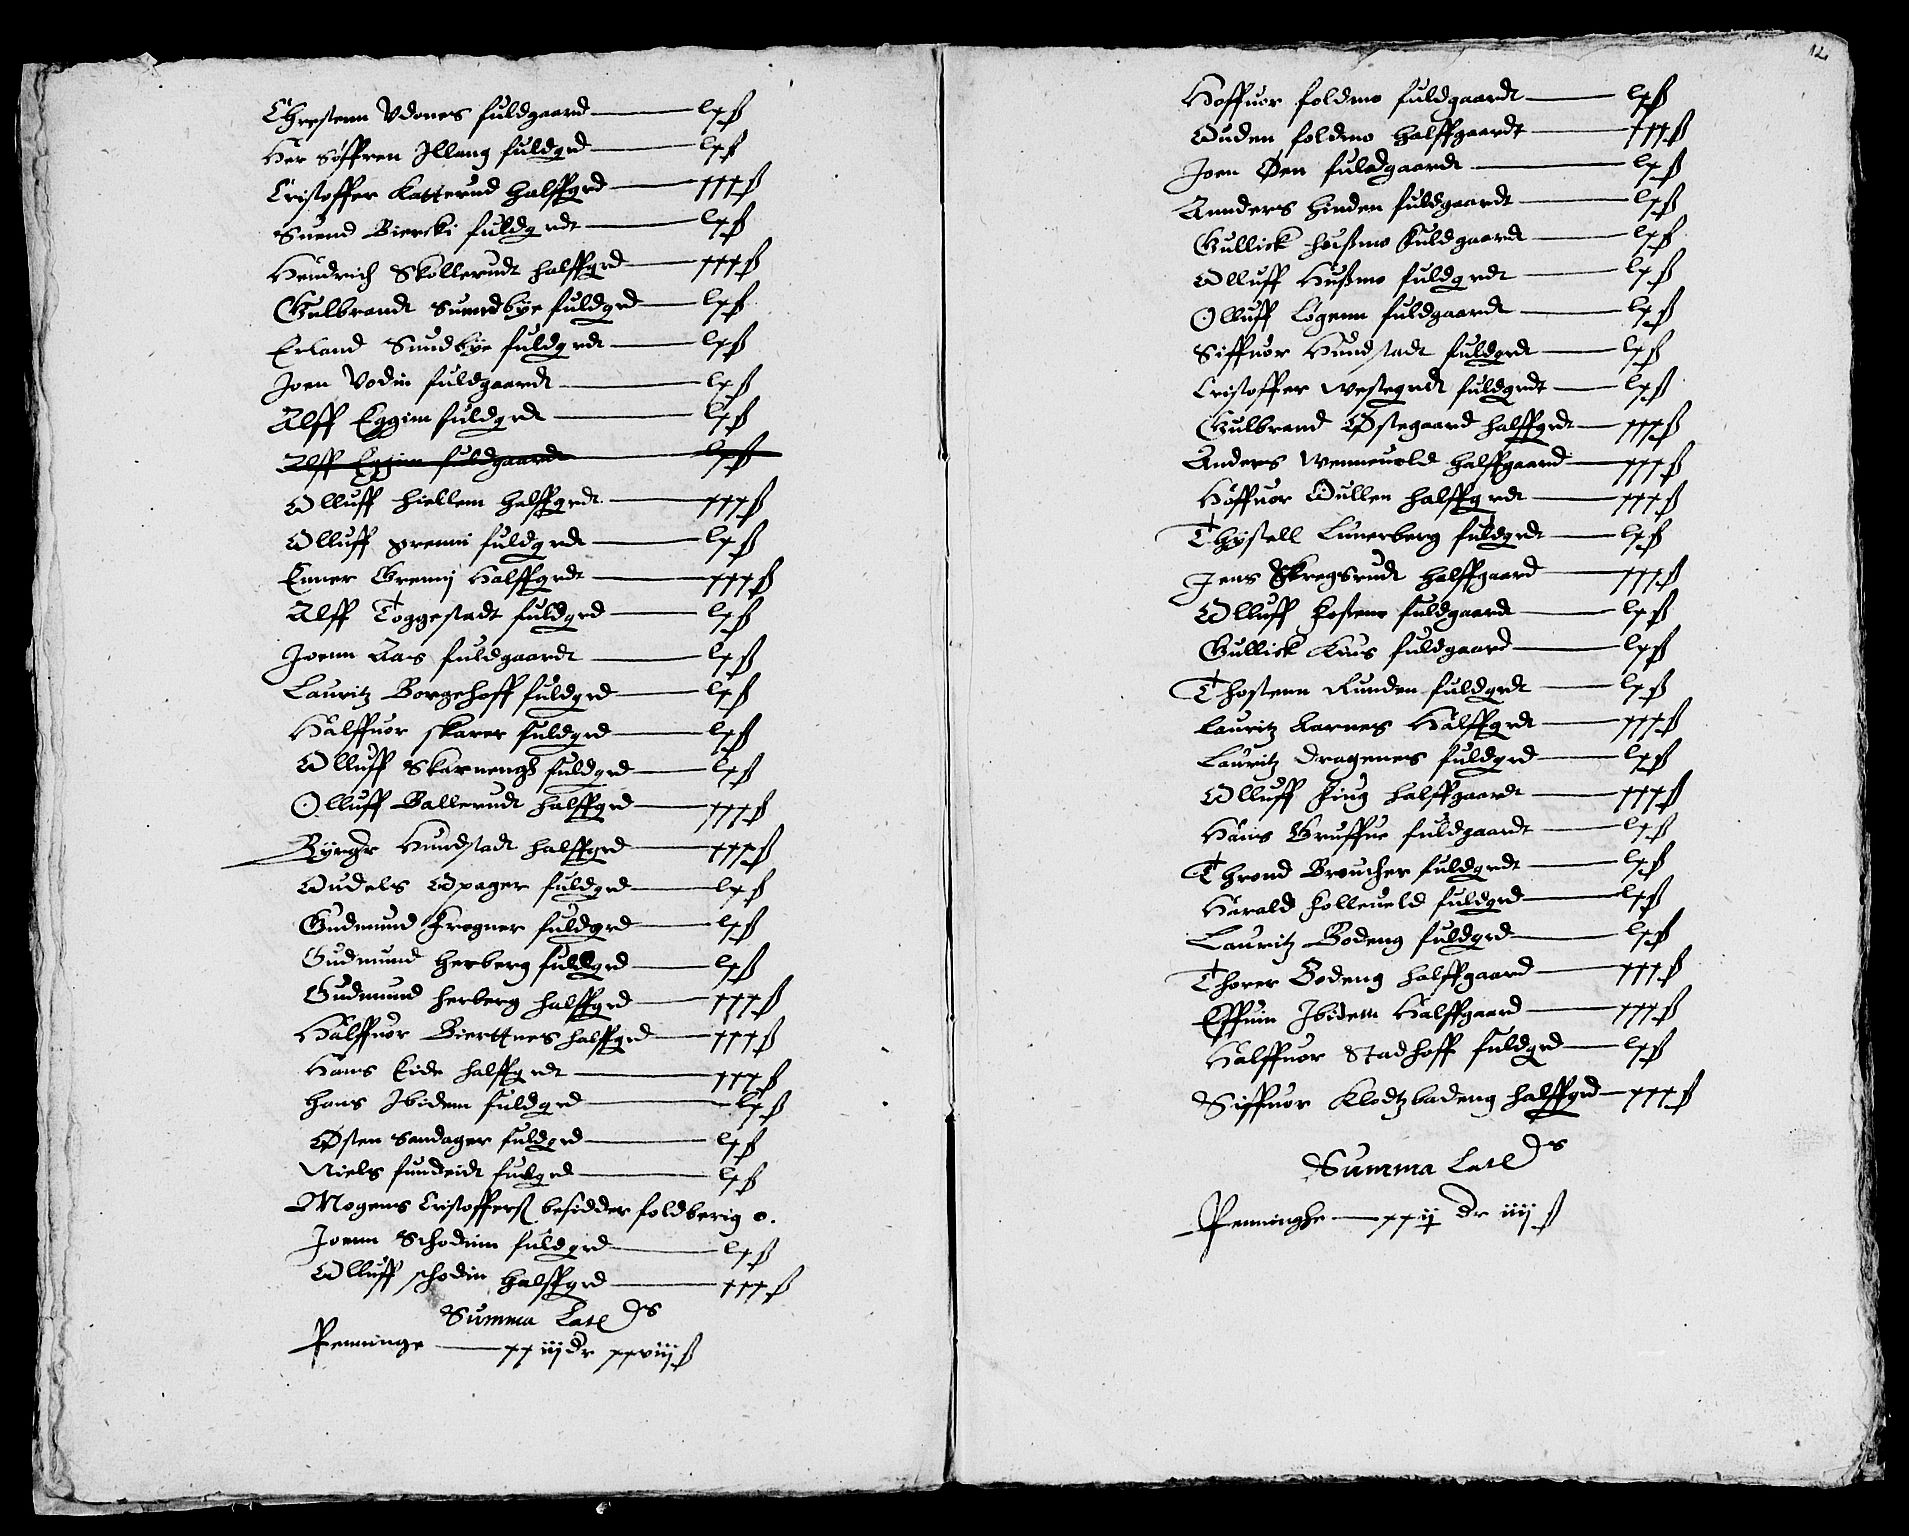 Chrestenn Vdones fuldgaard — lx ß
Her Søffren Illang fuldgrd — lx ß
Cristoffer Katterud halffgrd — xxx ß
Suend Biercki fuldgrdt — lx ß
Hendrich Skollerudt halffgrd — xxx ß
Gulbrandt Suendbye fuldgrd — lx ß
Erland Sundbye fuldgrdt — lx ß
Joen Vodin fuldgaardt — lx ß
Alff Eggim fuldgrdt — lx ß
Alff Eggim fuldgaardt — lx ß
Olluff Hiellem halffgrdt — xxx ß
Olluff Gremi fuldgrdt — lx ß
Enner Gremij Halffgrdt — xxx ß
Alff Toggestadt fuldgrd — lx ß
Joenn Aas fuldgaardt — lx ß
Lauritz Borgehoff fuldgrd — lx ß
Halffuor skarer fuldgrd — lx ß
Olluff Skarnengh fuldgrd — lx ß
Olluff Ballerudt halffgrd — xxx ß
Byrgr Hundstadt halffgrd — xxx ß
Oudels Opager fuldgrd — lx ß
Gudmund Frogner fuldgrd — lx ß
Gudmund Herberg fuldgrd — lx ß
Gudmund herberg halffgrd — xxx ß
Halffuor Bierttnes halffgrd — xxx ß
Hans Eide halffgrdt — xxx ß
Hans Ibidem fuldgrd — lx ß
Østen Sandager fuldgrd — lx ß
Niels fundeidt fuldgrd — lx ß
Mogens Cristofferß besidder foldberig o.
Joenn Schodiim fuldgrd — lx ß
Olluff schodin halffgrd — xxx ß
Summa Late͞s
Penninge — xxiij dr xxviij ß
12
Hoffuor foldmo fuldgaardt — lx ß
Ouden foldmo halffgaardt — xxx ß
Joen Øen fuldgaardt — lx ß
Annders Hinden fuldgaardt — lx ß
Gullick Hußmo fuldgaardt — lx ß
Olluff Hußmo fuldgrdt — lx ß
Olluff Løgenn fuldgaardt — lx ß
Siffuor Hundstadt fuldgrdt — lx ß
Cristoffer Westegrdt fuldgrdt — lx ß
Gulbrand Østegaard halffgrdt — xxx ß
Anders Wenneuold halffgaard — xxx ß
Høffuor Oullen halffgrdt — xxx ß
Thostell Lunerberg fuldgrdt — lx ß
Jens Skregsrudt halffgaard — xxx ß
Olluff Hostenn fuldgaardt — lx ß
Gullick Krus fuldgaard — lx ß
Thostenn Runden fuldgrdt — lx ß
Lauritz Aarnes Halffgrdt — xxx ß
Lauritz Dragenes fuldgrd — lx ß
Olluff King halffgaardt — xxx ß
Hans Gruffue fuldgaardt — lx ß
Thrond Broucher fuldgrdt — lx ß
Harald Holleueld fuldgrd — lx ß
Lauritz Bodeng fuldgrd — lx ß
Thorer Bodeng halffgaard — xxx ß
Effuin Ibidem Halffgaard — xxx ß
Halffuor Stadhoff fuldgrd — lx ß
Siffuor Klodtzbadeng halffgrd — xxx ß
Summa Late͞s
Penninghe — xxij dr iiij ß